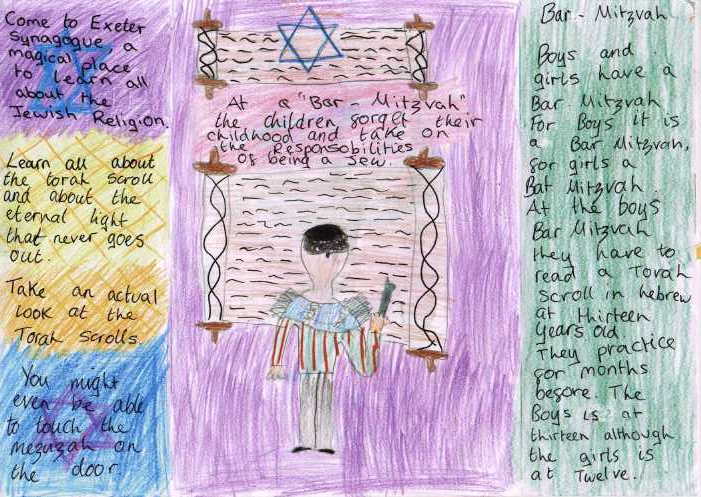 Come to Exeter
Synagogue, a
magical place
to learn all
about the
Jewish Religion.
Learn all about
the torah scroll
and about the
eternal light
that never goes
out.
Take an actual
look at the
Torah Scrolls.
You might
even be able
to touch the
mezuzah on
the door.
At a "Bar-Mitzvah"
the children forget their
childhood and take on
the Responsobilities
Of being a Jew.
Bar-Mitzvah
Boys and
girls have a
Bar Mitzvah
For Boys it is
a Bar Mitzvah,
for girls a
Bat Mitzvah.
At the boys
Bar Mitzvah
they have to
read a Torah
scroll in hebrew
at thirteen
years old
They practice
for months
before. The
Boys is at
thirteen although
the girls is
at Twelve.